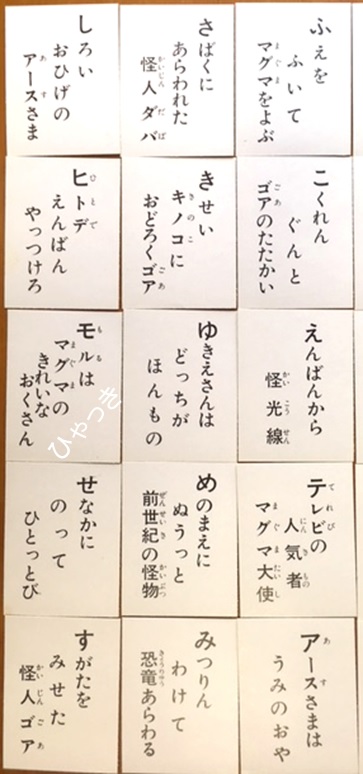 ふえを
ふいて
マグマをよぶ
さばくに
あらわれた
怪人ダバ
しろい
おひげの
アースさま
こくれん
ぐんと
ゴアのたたかい
きせい
キノコに
おどろくゴア
ヒトデ
えんばん
やっつけろ
えんばんから
怪光線
ゆきえさんは
どっちが
ほんもの
モルは
マグマの
きれいな
おくさん
テレビの
人気者
マグマ大使
めのまえに
ぬうっと
前世紀の怪物
せなかに
のって
ひとっとび
アースさまは
うみのおや
みつりん
わけて
恐竜あらわる
すがたを
みせた
怪人ゴア
ひやつき